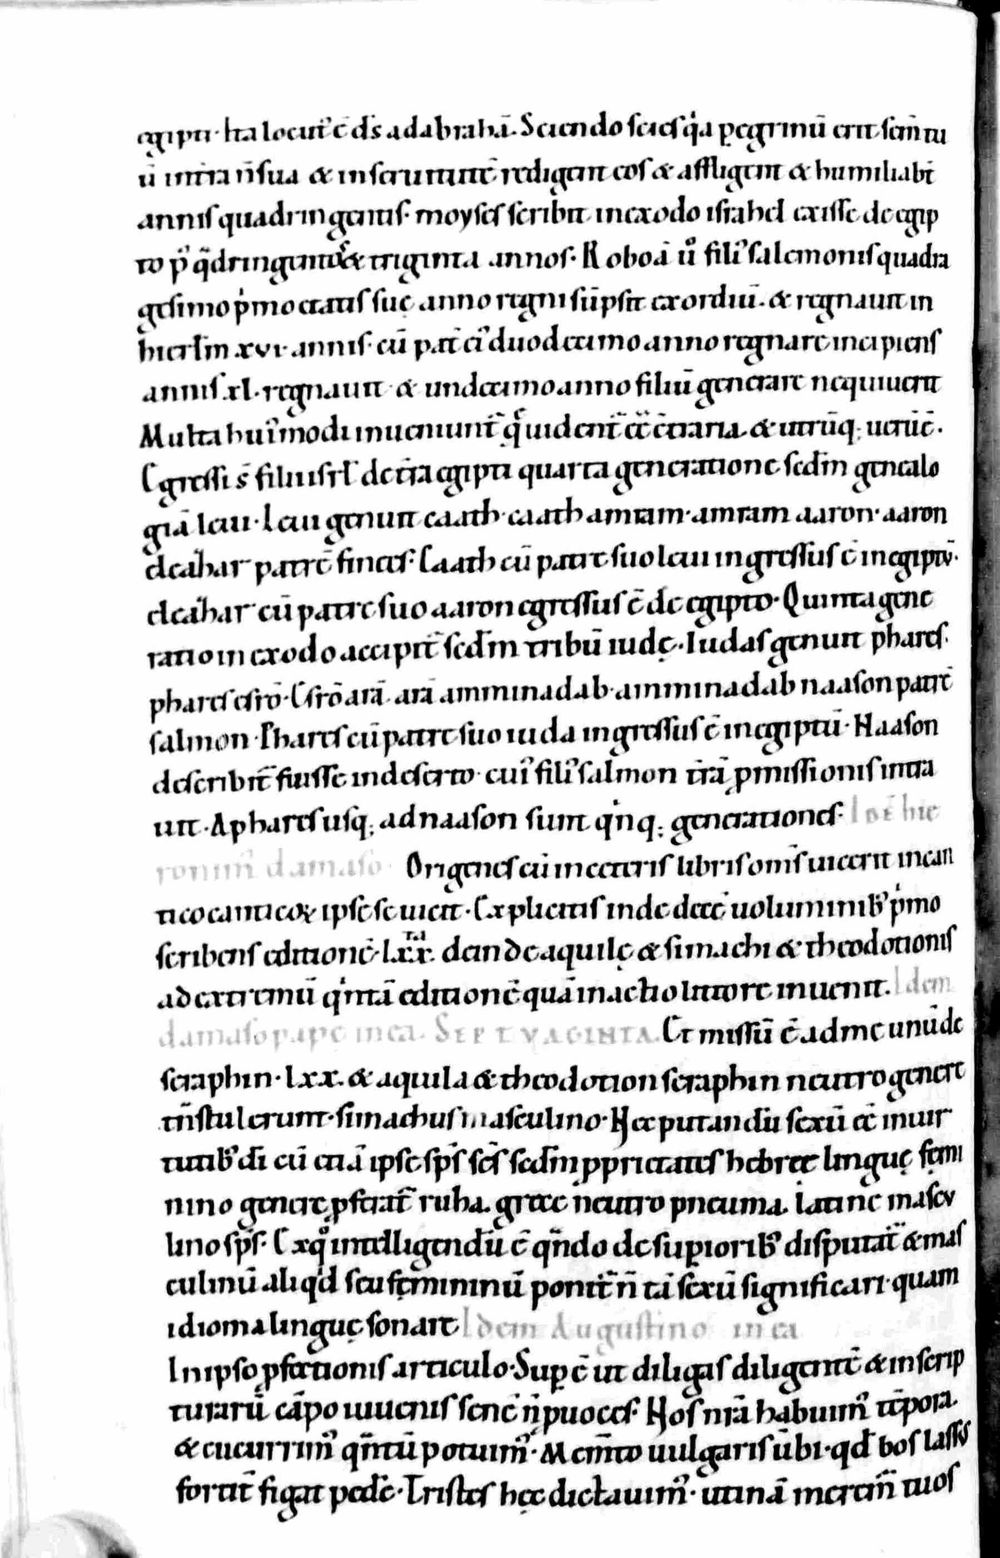 egipti· Ita locut᷒ ē dn̄s ad abrahā. Sciendo scies q͛a pegrinū erit sem̄ tu
ū in t̄ra n̄ sua & in seruitutē redigent eos & affligent & humiliabt̄
annis quadringentis· moyses scribit in exodo israhel exisse de egip
to p᷒ q̄dringentos & triginta annos· Roboā ū filius salemonis quadra
gesimo p͛mo etatis suę anno regni sūpsit exordiū· & regnauit in
hierlm̄ xvi· annis· cū pat̄ ei᷒ duodecimo anno regnare incipiens
annis· xl· regnauit & undecimo anno filiū generare nequiuerit
Multa hui᷒modi inueniunt᷒ q̨ uident᷒ ēē ɔtraria & utrūq; uerū ē·
Egressi s̄ filii isrl̄ de t̄ra egipti quarta generatione sedm̄ genealo
giā leui· Leui genuit caath· caath amram· amram aaron· aaron
eleahar patrē finees· Caath cū patre suo leui ingressus ē in egiptū·
eleahar cū patre suo aaron egressus ē de egipto· Quinta gene
ratio in exodo accipit᷒ sedm̄ tribū iudę· Iudas genuit phares·
phares esrō· Esrō arā· arā amminadab· amminadab naason patrē
salmon· Phares cū patre suo iuda ingressus ē in egiptū· Naason
describit᷒ fuisse in deserto· cui᷒ fili᷒ salmon t̄rā pmissionis intra
uit· A phares usq; ad naason sunt q͛nq; generationes· Idē hie
ronim᷒ damaso· Origenes cū in ceteris libris om̄s uicerit in can
tico canticoꝝ ipse se uicit· Explicitis inde decē uoluminib᷒ p͛mo
scribens editionē· Lxx· dein de aquilę & simachi & theodotionis
ad extremū q͛ntā editionē quā in actio littore inuenit· Idem
damaso pape in ea. SEPTVAGINTA. Et missū ē ad me unū de
seraphin· Lxx· & aquila & theodotion seraphin neutro genere
tn̄stulerunt· simachus masculino· Nec putandū sexū ēē in uir
tutib᷒ di cū etiā ipse sps̄ scs̄ sedm̄ pprietates hebreę linguę femi
nino genere pferat᷒ ruha· grece neutro pneuma· Latine mascu
lino sps̄· Ex quo intelligendū ē q̄ndo de superiorib᷒ disputat᷒ & mas
culinū aliqd̄ seu femininū ponit᷒ n̄ tā sexū significari· quam
idioma linguę sonare Idem Augustino in ea
In ipso pfectionis articulo· Supē ut diligas diligentē & in scrip
turarū cāpo iuuenis senē n̄ puoces· Nos nr̄a habuim᷒ tēpora
& cucurrim᷒ q̄ntū potuim᷒· Mem̄to uulgaris ūbi· qd̄ bos lassus
forti᷒ figat pedē· Tristes hęc dictauim᷒· utinā merem̄ tuos